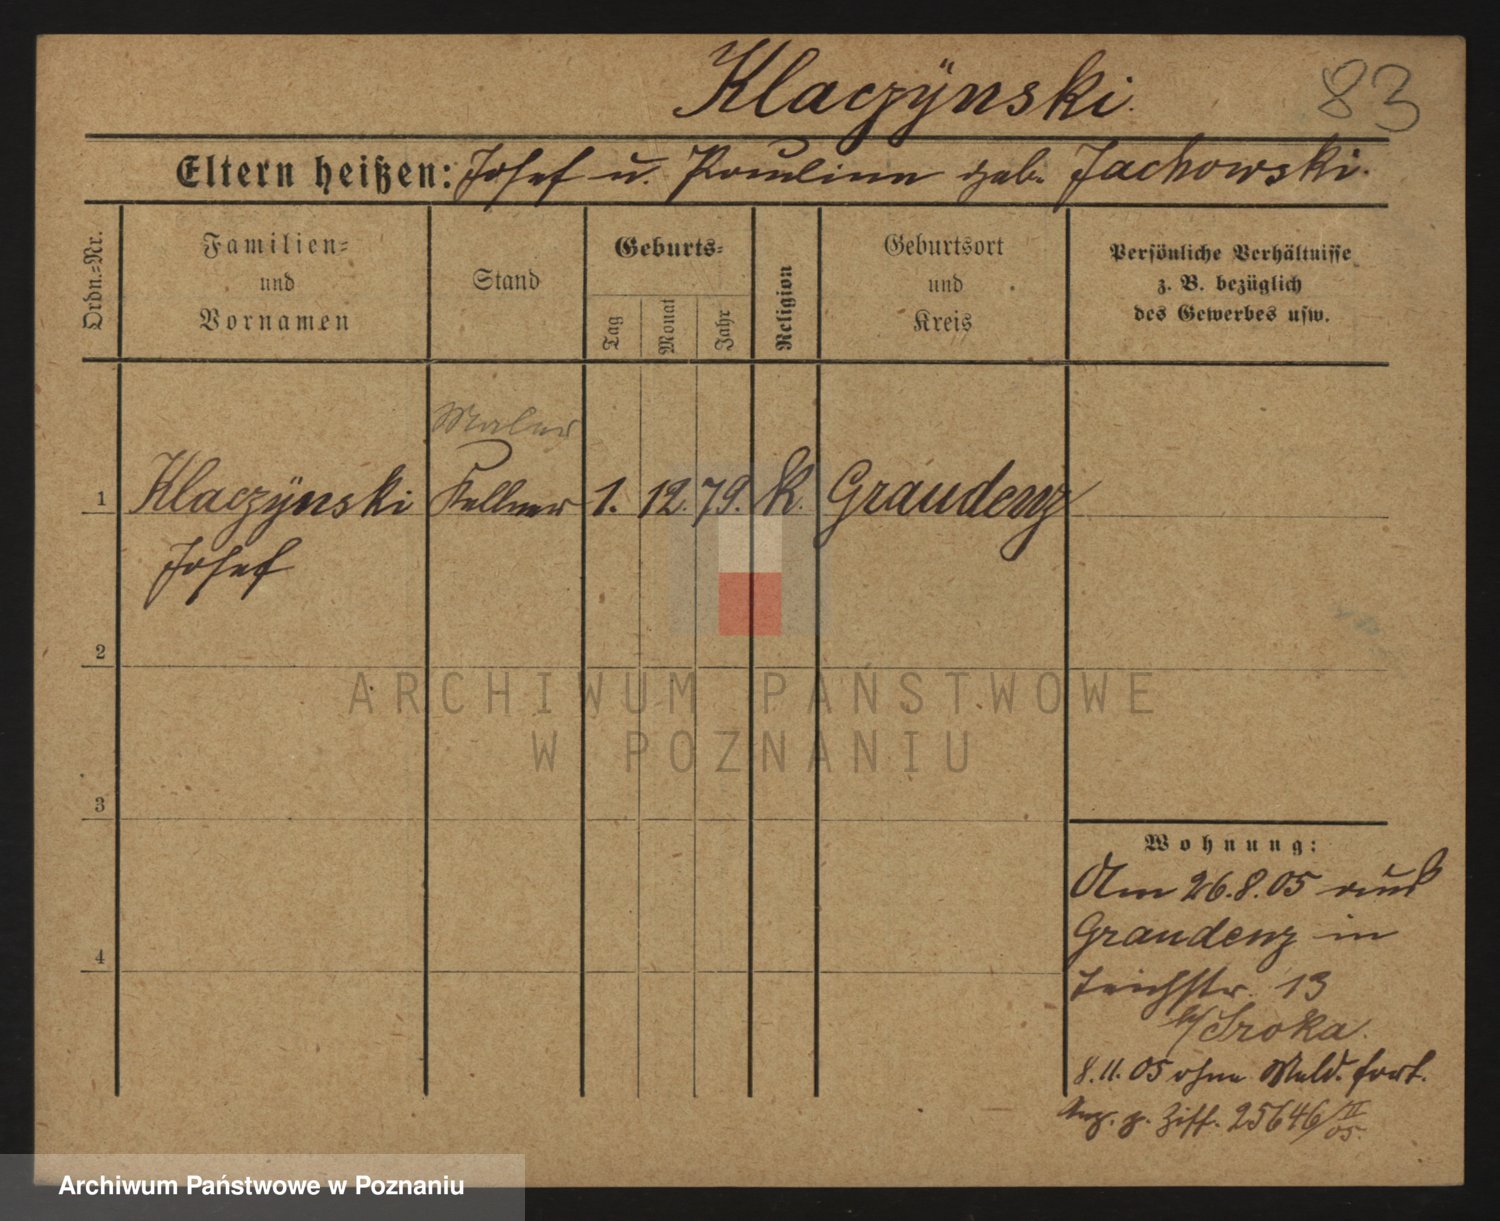 Klaczÿnski.
83
Eltern heißen: Josef u. Pauline geb. Jachowski.
Ordn.-Nr.
Familien-
und
Vornamen
Stand
Geburts-
Tag
Monat
Jahr
Religion
Geburtsort
und
Kreis
Persönliche Verhältnisse
z. B. bezüglich
des Gewerbes usw.
Maler
1 Klaczÿnski Kellner 1. 12. 79. K. Graudenz
Josef
2
ARCHIWUM PAŃSTWOWE
W POZNANIU
3
Wohnung:
Am 26.8.05 aus
Graudenz in
4
Teichstr. 13
b/Sroka.
8.11.05 ohne Meld. fort.
z. Ziff. 25646/II
05.
Archiwum Państwowe w Poznaniu